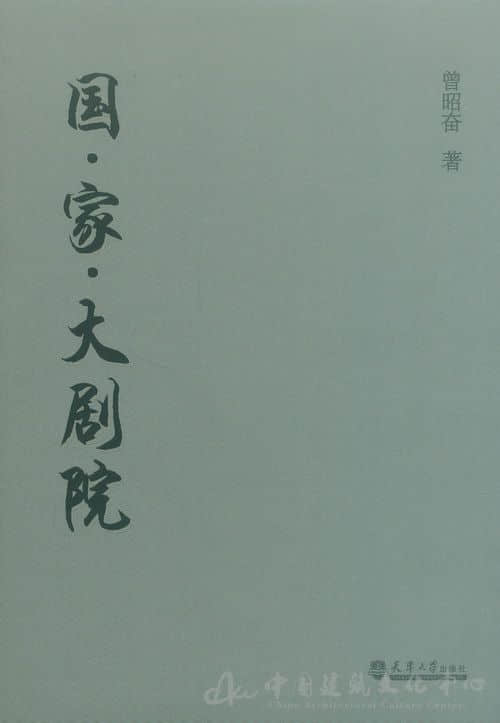 国·家·大剧院
曾昭奋 著
天津大学出版社
中国建筑文化中心
China Architectural Culture Center